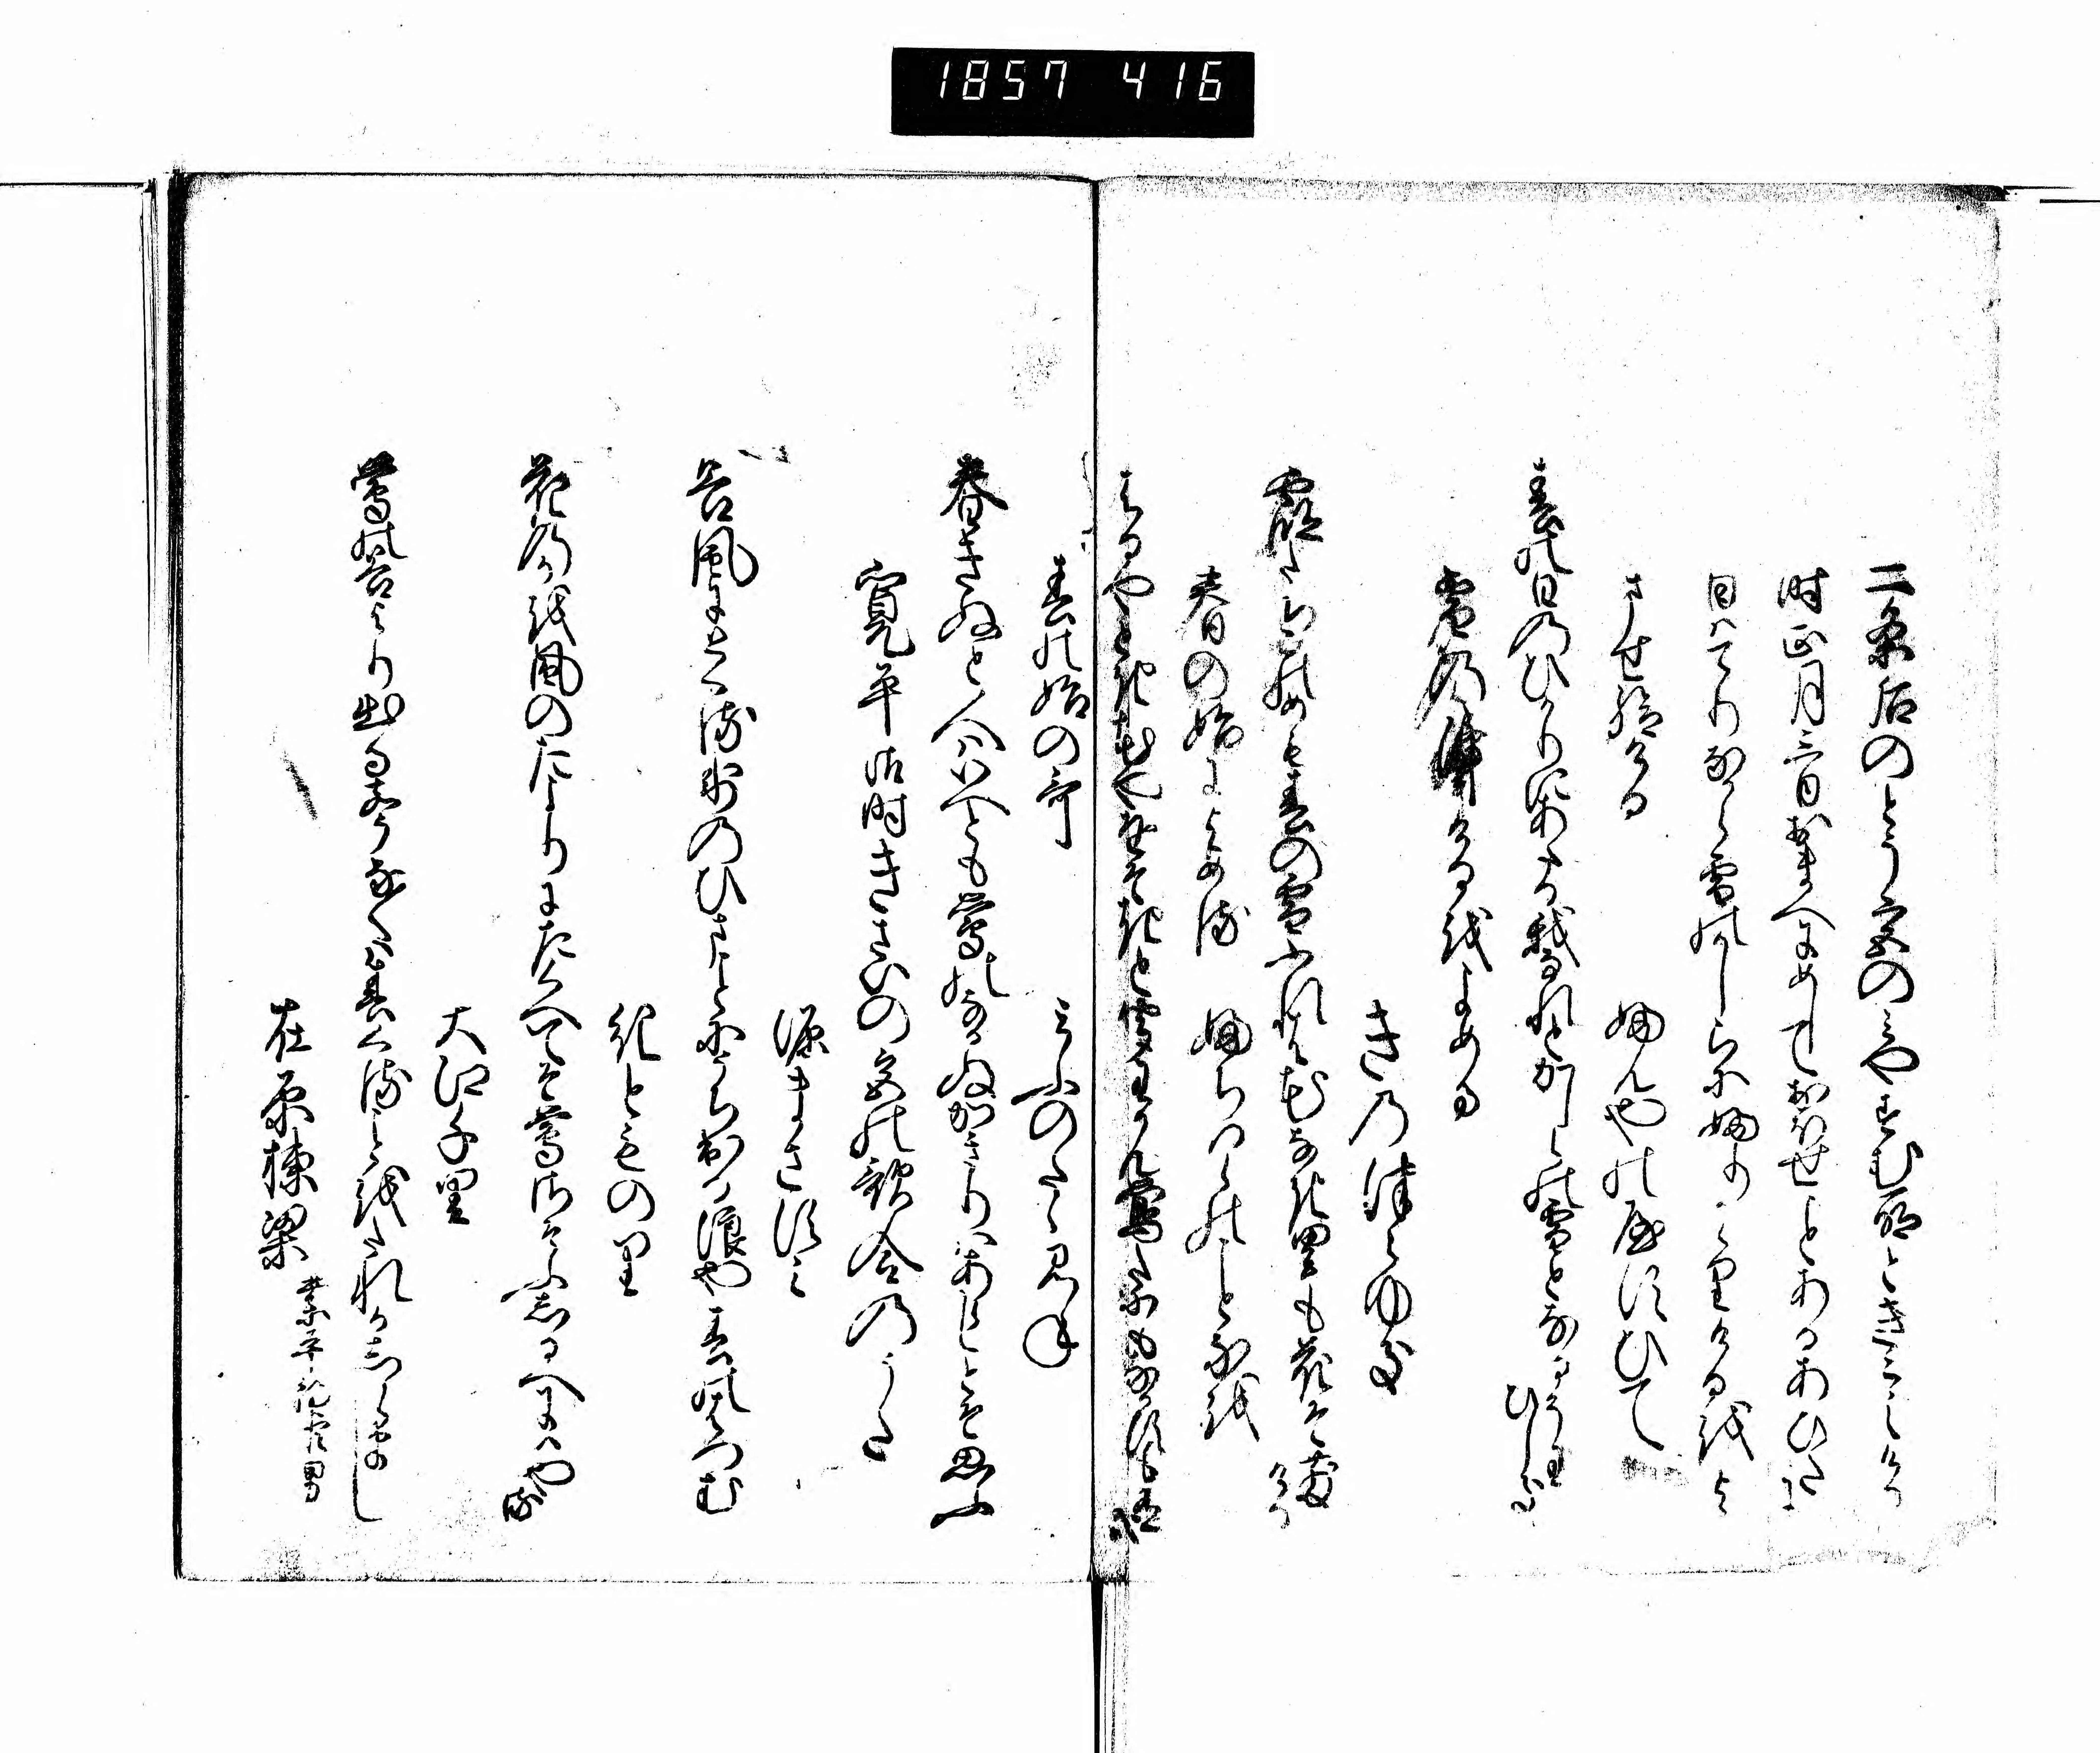 1857 416
二条后のとう宮のみやすむ所ときこえける
時正月三日おまへにめしておほせことあるあひたに
日はてりなから雪のかしらにふりかゝりけるをよ
ませ給ける
ふんやのやすひて
春の日のひかりにあたる我なれとかしらの雪となるそわひしき
雪の降けるをよめる
きのつらゆき
霞たちこのめも春の雪ふれは花なき里も花そ散ける
春の始によめる
ふちはらのことなを
はるやとき花やをそきと聞わかん鶯たにもなかすも有哉
春の始の哥
みふのたゝみね
春きぬと人はいへとも鶯のなかぬかきりはあらしとそ思ふ
寛平御時きさいの宮の歌合のうた
源まさすみ
谷風にとくる氷のひまことにうち出る浪や春のはつ花
紀とものり
花のかを風のたよりにたくへてそ鶯さそふしるへにはやる
大江千里
鶯の谷より出るこゑなくは春くることをたれかしらまし
在原棟梁
業平朝臣男